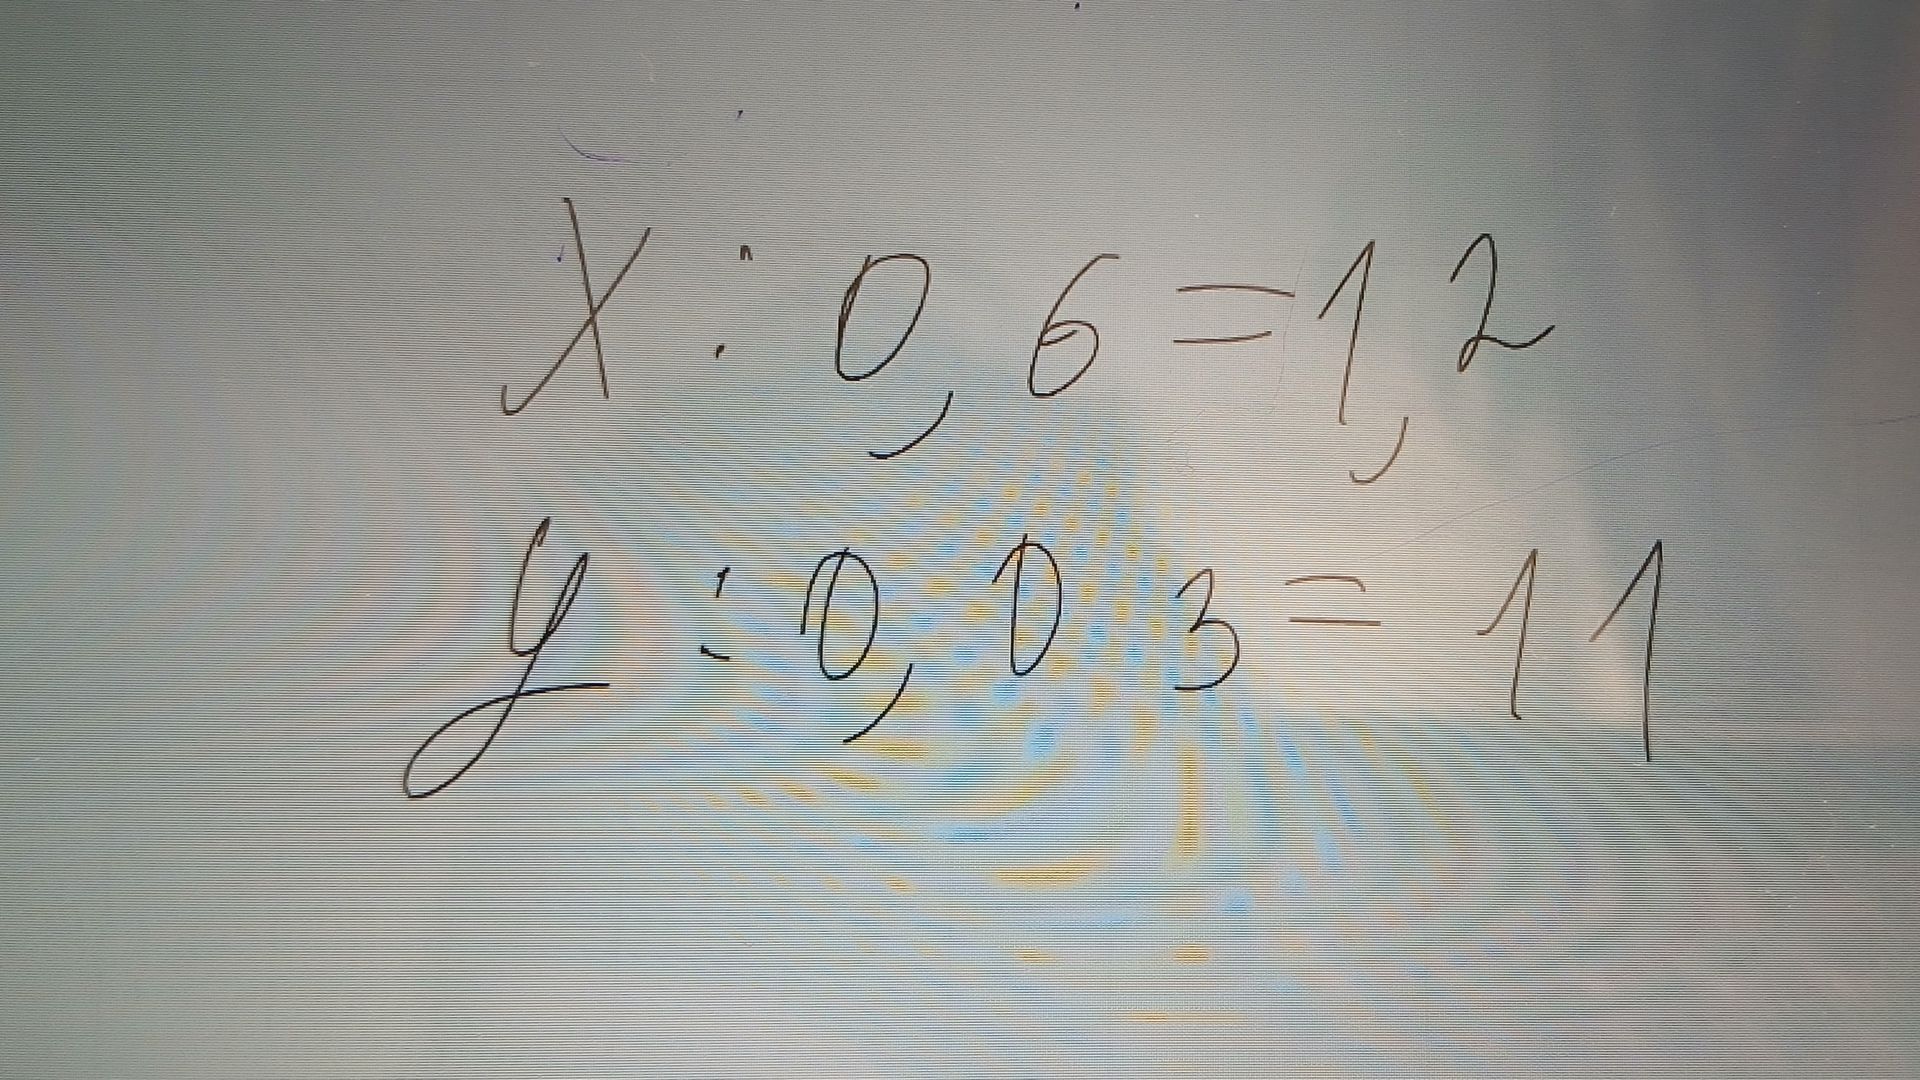 X : 0,6 = 1,2
y : 0,03 = 11